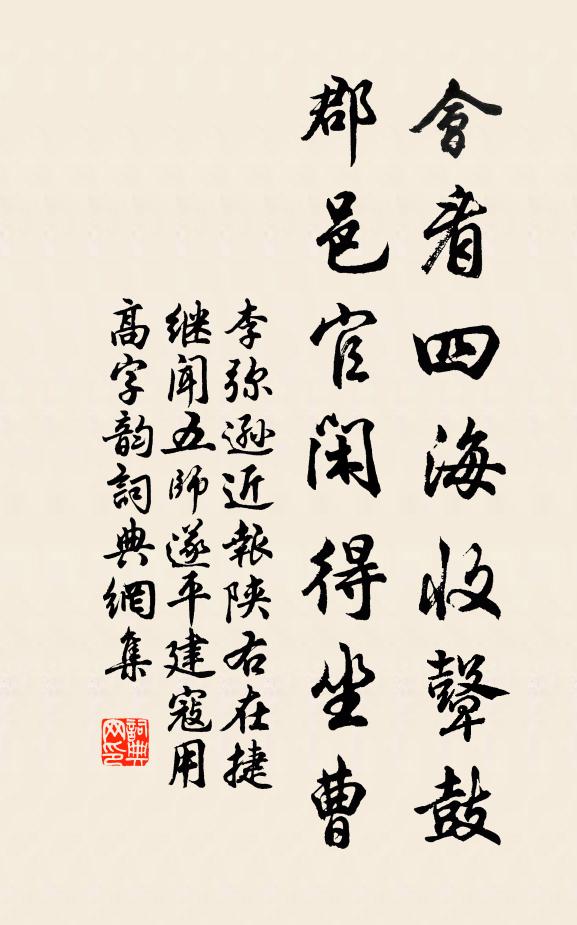 會看四海收鼙鼓
郡邑官閑得坐曹
李弥遜近報陕右在捷
继闻五師遂平建寇用
高字韵詞典網集
詞典网印